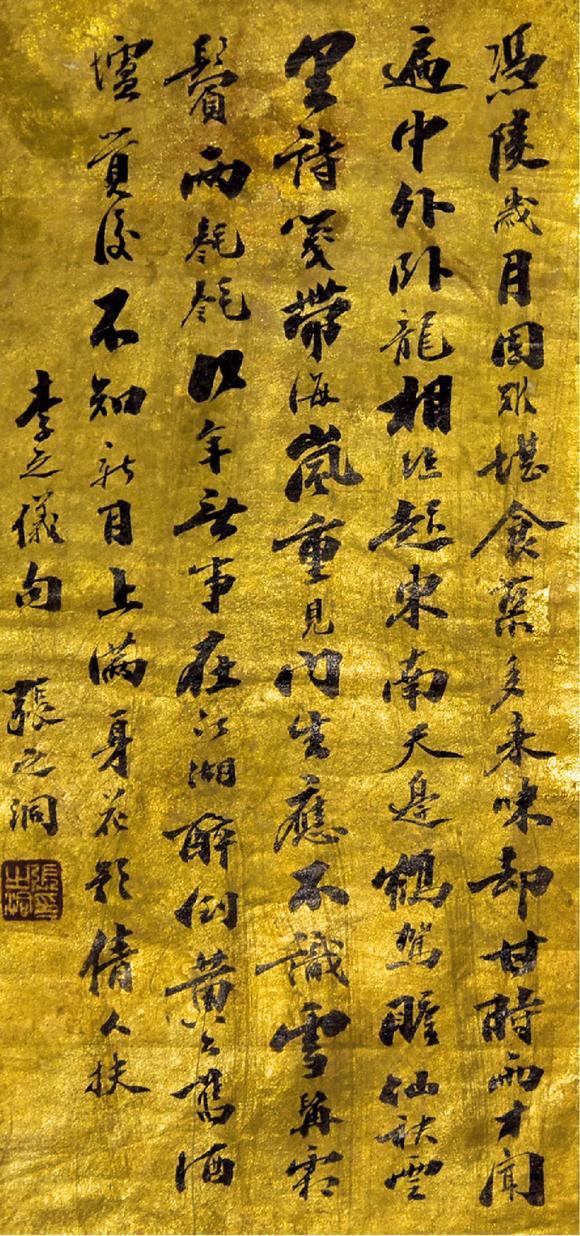 馮陵歲月固難堪食蘖多來味却甘時雨才聞
遍中外卧龍相起東南天邊鶴駕瞻仙袂雲
里詩箋帶海嵐重見門生應不識雪髯霜
鬢兩毿毿年無事在江湖醉倒黃公舊酒
壚覺後不知新月上滿身花影倩人扶
李之儀句 張之洞